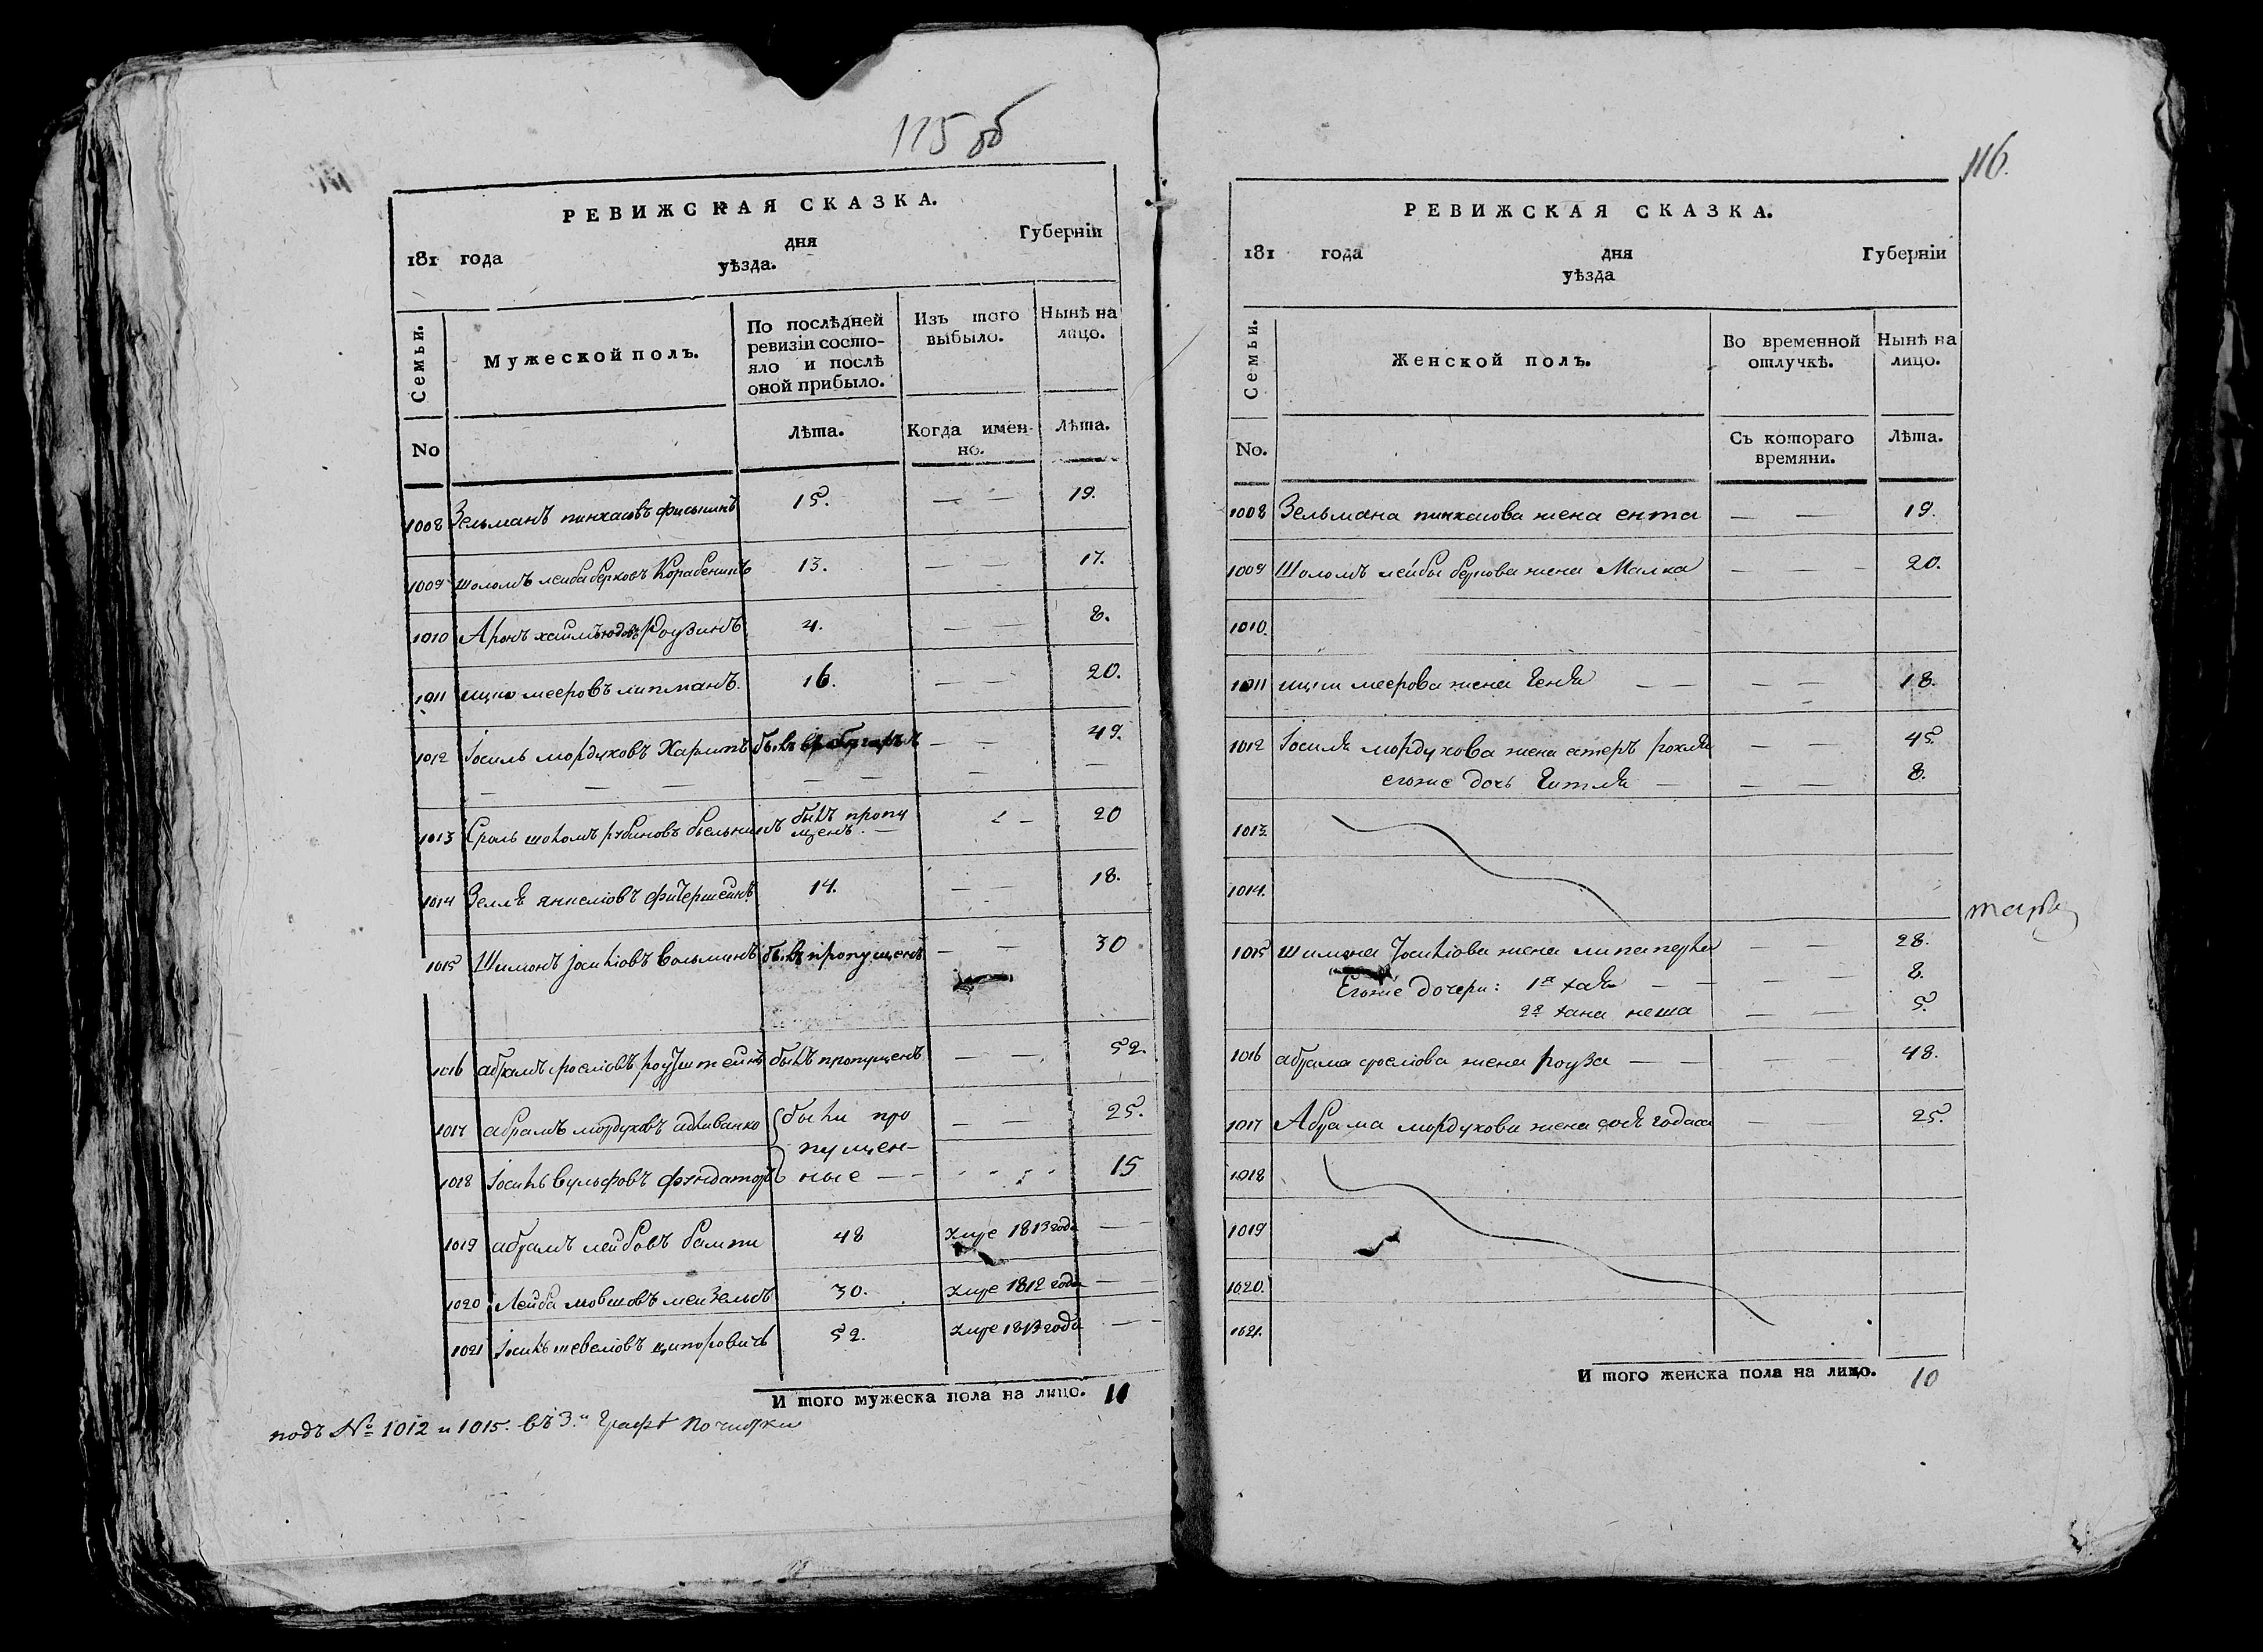 115 об
РЕВИЖСКАЯ СКАЗКА.
181 года дня Губерніи
уѣзда.
Семьи. Мужеской полъ. По послѣдней ревизіи состояло и послѣ оной прибыло. Изъ того выбыло. Нынѣ на лицо.
No Лѣта. Когда именно. Лѣта.
1008 Зельманъ пинхасовъ 15. — — 19.
1009 шоломъ лейба берковъ 13. — — 17.
1010 Аронъ хаимъ юдовъ Роузинъ 4. — — 8.
1011 ицко мееровъ липманъ. 16. — — 20.
1012 Іосиль мордуховъ Харитъ — — 49.
1013 Сроль шоломъ рубиновъ бельникъ былъ пропущенъ. — 20
1014 Зелля 14. — — 18.
1015 Шимонъ Іосиліовъ вольманъ былъ пропущенъ — — 30
1016 абрамъ сроеліовъ роузштейнъ былъ пропущенъ — — 52.
1017 абрамъ мордуховъ {были про — — 25.
пущен-
1018 Іосиль вульфовъ фундаторъ ные — - - - - 15
1019 абрамъ лейбовъ 48 1813 года — —
1020 Лейба мовшовъ мензельъ 30. 1812 года — —
1021 Іосиль шевеліовъ ципоровичъ 52. 1813 года — —
И того мужеска пола на лицо. 11
подъ № 1012 и 1015. въ 3.й графѣ почистки
116.
РЕВИЖСКАЯ СКАЗКА.
181 года дня Губерніи
уѣзда
Семьи. Женской полъ. Во временной отлучкѣ. Нынѣ на лицо.
No. Съ котораго времяни. Лѣта.
1008 Зельмана пинхасова жена ента — — 19.
1009 Шоломъ лейбы беркова жена Малка — — - 20.
1010.
1011 ицки меерова жена Геня — — — — 18.
1012 Іосиля мордухова жена естеръ рохля — — 45.
егоже дочь Гитля — — — 8.
1013.
1014.
1015 шимона Іосиліова жена — — 28.
Егоже дочери: 1я хая — — — — 8.
2я хана неша — — 5.
1016 абрама сроеліова жена роуза — — — — 48.
1017 Абрама мордухова жена — 25.
1018
1019
1020.
1021.
И того женска пола на лицо. 10